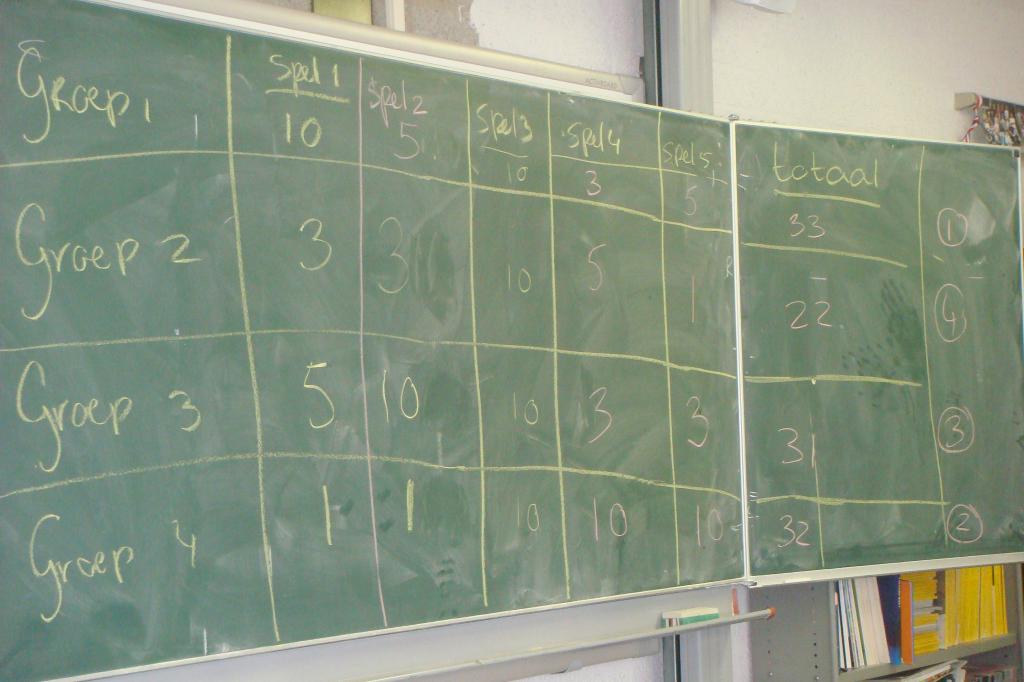 Groep 1 Spel 1 Spel 2 Spel 3 Spel 4 Spel 5 totaal
10 5 10 3 5 33 1
Groep 2 3 3 10 5 1 22 4
Groep 3 5 10 10 3 3 31 3
Groep 4 1 1 10 10 10 32 2